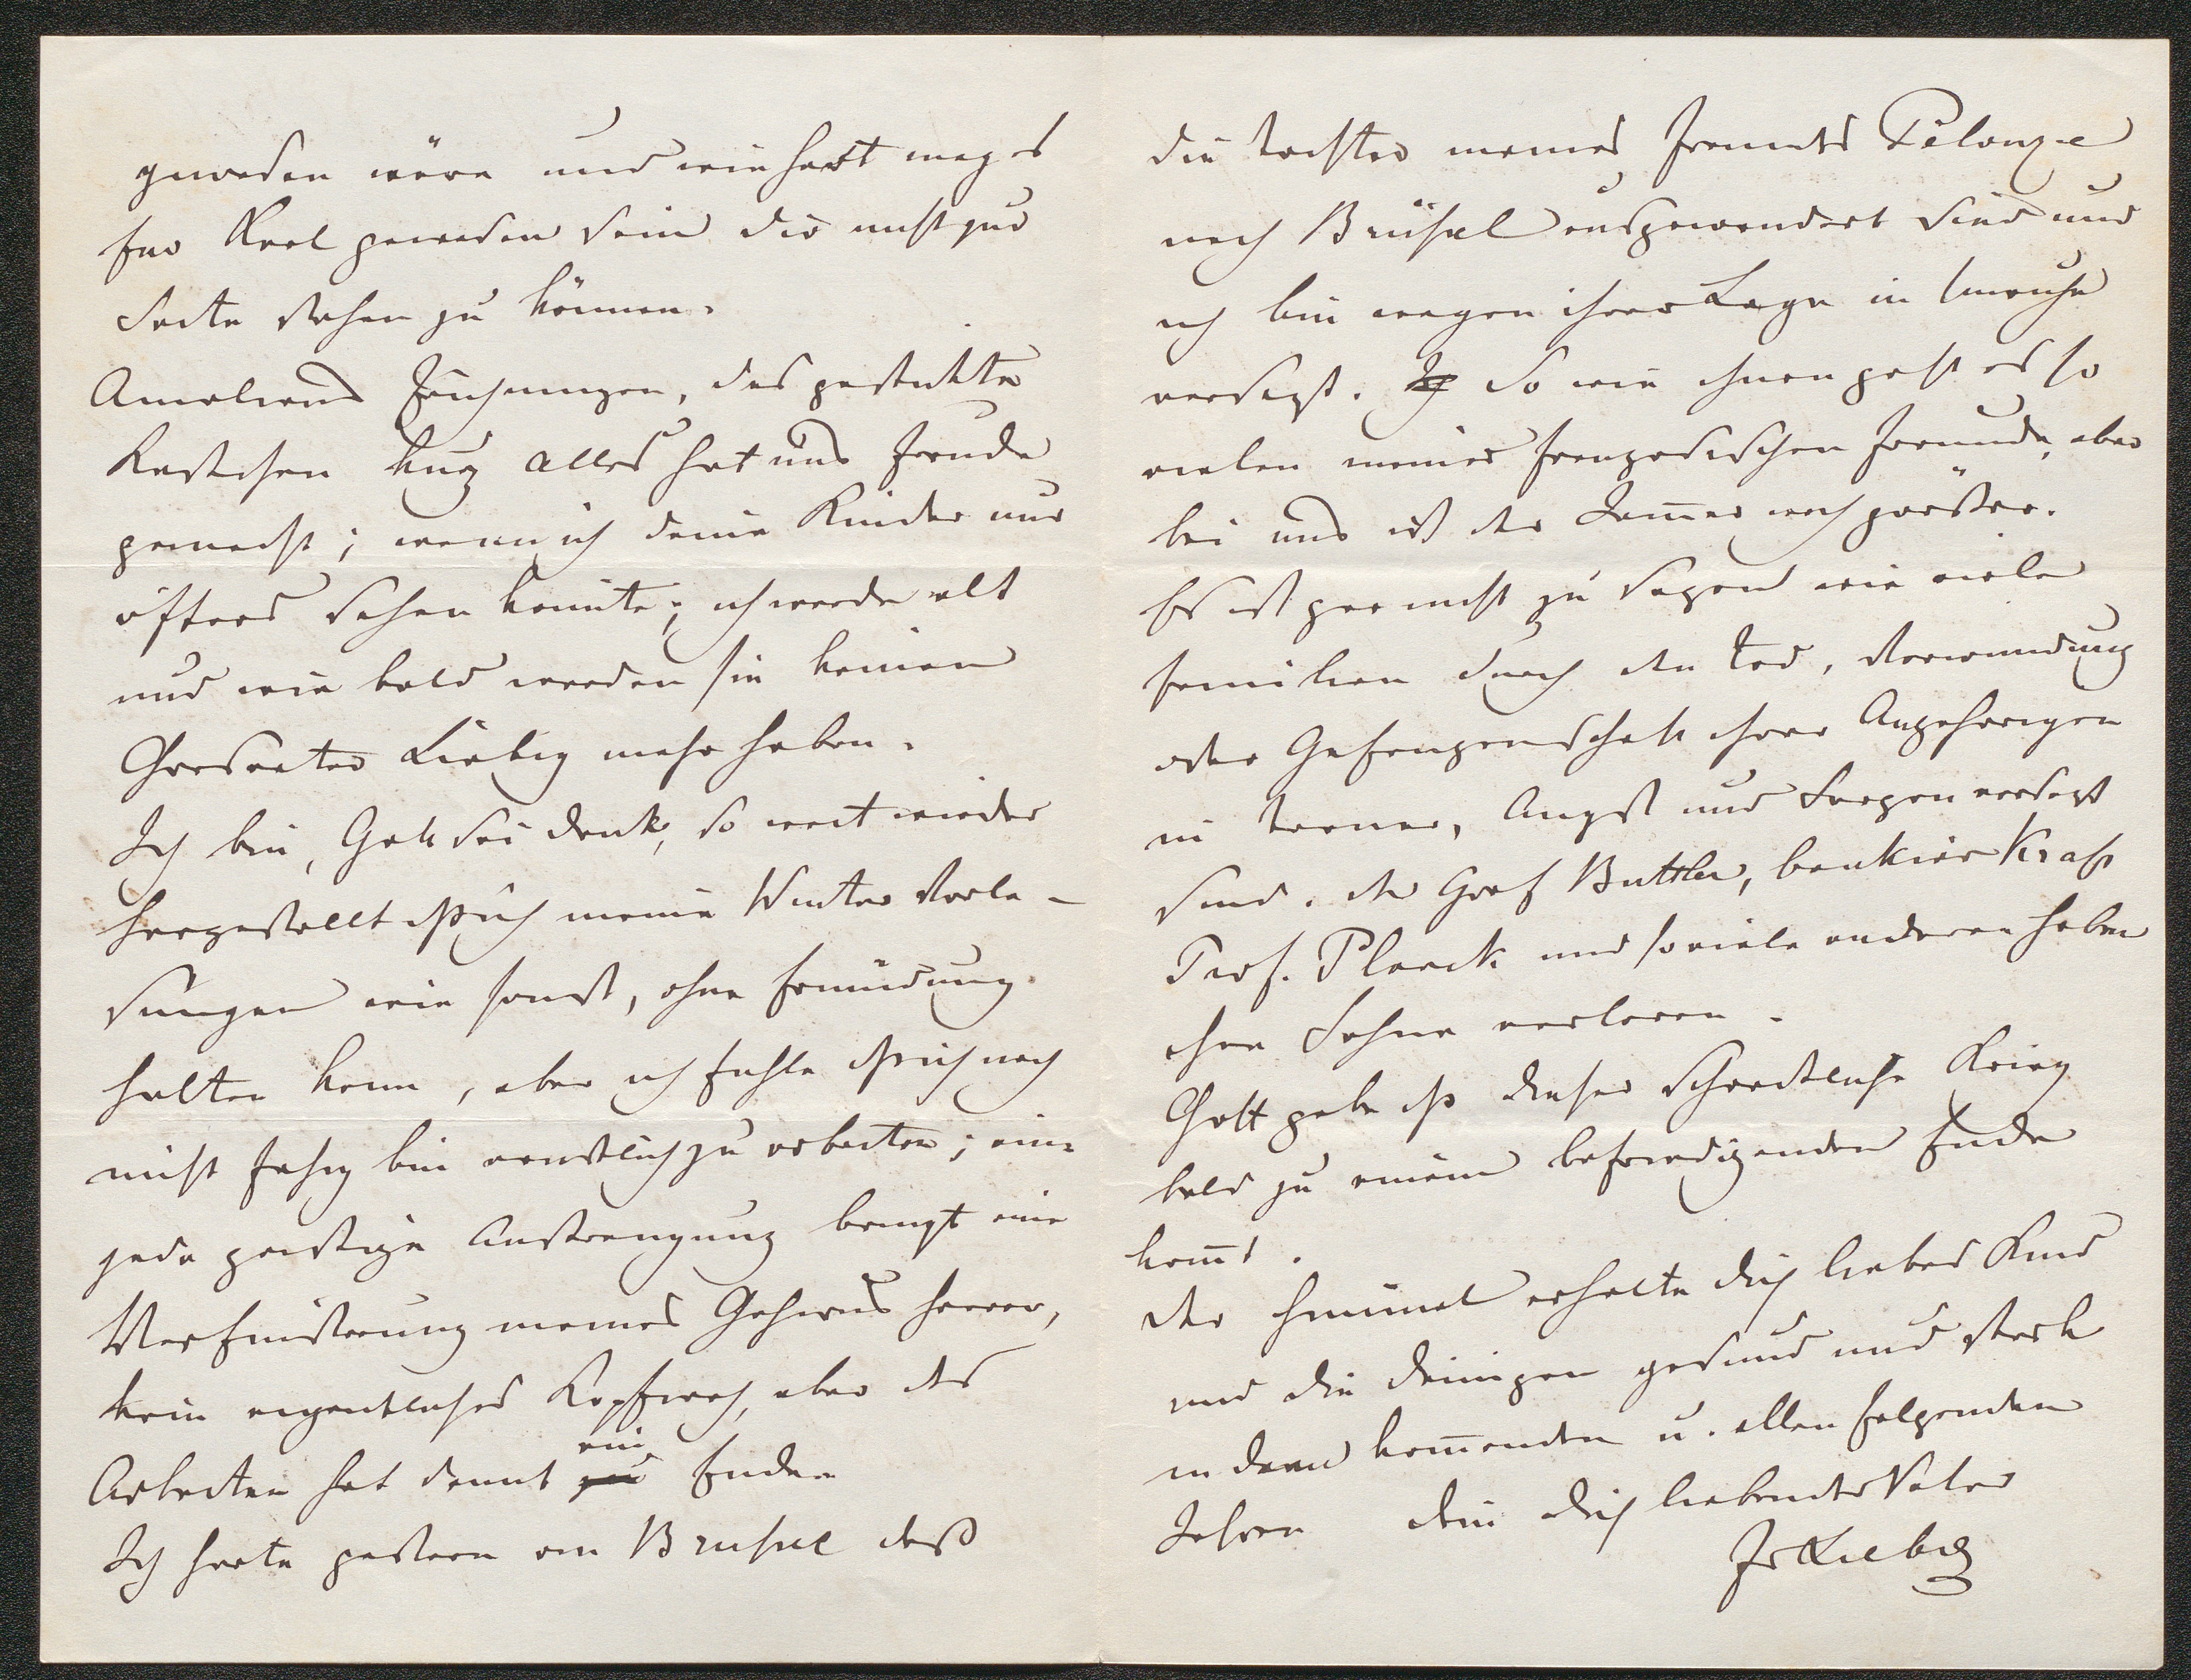 gewesen wäre und wie hart mag es
für Karl gewesen sein dir nicht zur
Seite stehen zu können.
Amaliens Zeichnungen, das gestickte
Kästchen kurz alles hat uns Freude
gemacht; wenn ich deine Kinder nur
öfters sehen könnte; ich werde alt
und wie bald werden sie keinen
Grosvater Liebig mehr haben.
Ich bin, Gott sei Dank, so weit wieder
hergestellt daß ich meine Winter Vorle-
sungen wie sonst, ohne Ermüdung
halten kann, aber ich fühle daß ich noch
nicht fähig bin ernstlich zu arbeiten; ein
jede geistige Anstrengung bringt eine
Verfinsterung meines Gehirns hervor,
kein eigentliches Kopfweh, aber das
Arbeiten hat damit ein Ende.
Ich hörte gestern von Brüssel daß
die Töchter meines Freundes Pelouze
nach Brüssel ausgewandert sind und
ich bin wegen ihrer Lage in Unruhe
versetzt. So wie ihnen geht es so
vielen meiner französischen Freunde, aber
bei uns ist der Jam̄er noch größer.
Es ist gar nicht zu sagen wie viele
Familien durch den Tod, Verwundung
oder Gefangenschaft ihrer Angehörigen
in Trauer, Angst und Sorgen versetzt
sind. Der Graf Buttler, Bankier
Prof. Planck und so viele anderen haben
ihre Söhne verloren.
Gott gebe daß dieser schreckliche Krieg
bald zu einem befriedigenden Ende
kom̄t.
Der Himmel erhalte dich liebes Kind
und die Deinigen gesund und stark
in dem kom̄enden u. allen folgenden
Jahren dein dich liebender Vater
Jv Liebig